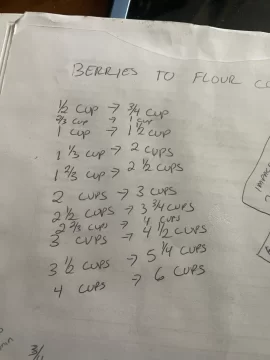 BERRIES TO FLOUR
½ CUP → ¾ CUP
⅔ CUP → 1 CUP
1 CUP → 1 ½ CUP
1 ⅓ CUP → 2 CUPS
1 ⅔ CUP → 2 ½ CUPS
2 CUPS → 3 CUPS
2 ½ CUPS → 3 ¾ CUPS
2 ⅔ CUPS → 4 CUPS
3 CUPS → 4 ½ CUPS
3 ½ CUPS → 5 ¼ CUPS
4 CUPS → 6 CUPS